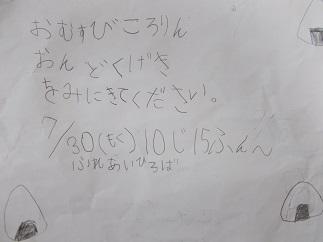 おむすびころりん
おんどくげき
をみにきてください。
7/30(もく)10じ15ふん〜
ふれあいひろば